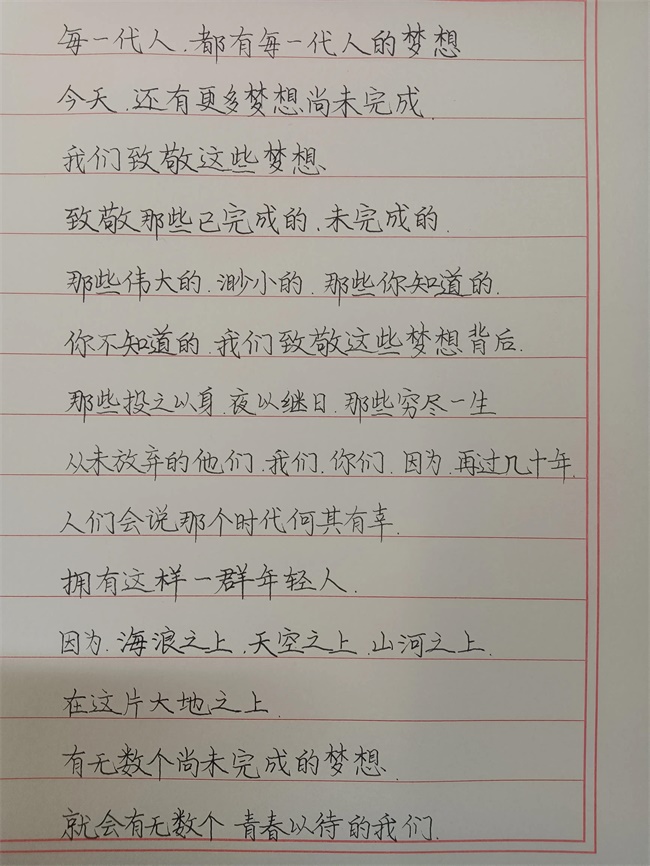 每一代人、都有每一代人的梦想
今天、还有更多梦想尚未完成、
我们致敬这些梦想、
致敬那些已完成的、未完成的、
那些伟大的、渺小的、那些你知道的、
你不知道的、我们致敬这些梦想背后、
那些投之以身、夜以继日、那些穷尽一生
从未放弃的他们、我们、你们、因为、再过几十年、
人们会说那个时代何其有幸、
拥有这样一群年轻人、
因为、海浪之上、天空之上、山河之上、
在这片大地之上、
有无数个尚未完成的梦想、
就会有无数个 青春以待的我们、